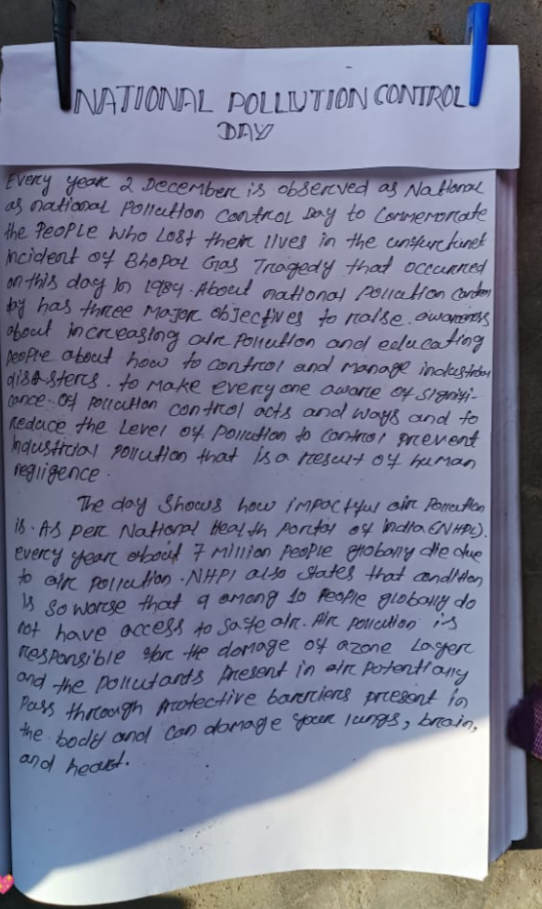 NATIONAL POLLUTION CONTROL
DAY
Every year 2 December is observed as National
as national Pollution Control Day to Commemorate
the People who Lost their lives in the unfurtunet
incident of Bhopal Gas Tragedy that occurred
on this day In 1984. About national Pollution
day has three Major objectives to raise. awareness
about increasing air Pollution and educating
people about how to control and manage industrial
disasters. to Make everyone aware of signifi-
cance of pollution control acts and ways and to
Reduce the Level of Pollution to control prevent
industrial Pollution that is a result of human
negligence.
The day Shows how impactful air Pollution
is. As per National Health Portal of India (NHPI).
every year about 7 Million People globally die due
to air pollution. NHPI also states that condition
is so worse that 9 among 10 People globally do
not have access to safe air. Air pollution is
responsible for the damage of azone Layer
and the Pollutants Present in air Potentially
Pass through Protective barriers present in
the body and can damage your lungs, brain,
and heart.